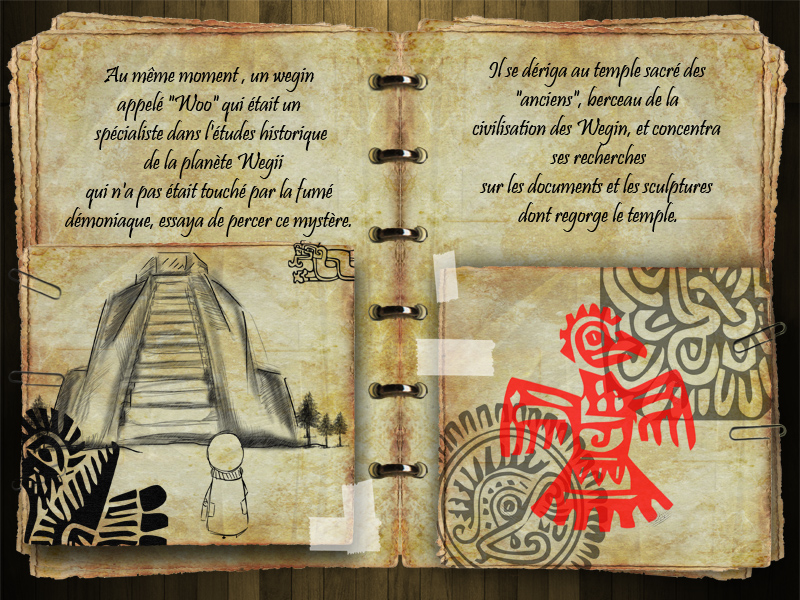 Au même moment , un wegin
appelé "Woo" qui était un
spécialiste dans l'études historique
de la planète Wegii
qui n'a pas était touché par la fumé
démoniaque, essaya de percer ce mystère.
Il se dériga au temple sacré des
"anciens", berceau de la
civilisation des Wegin, et concentra
ses recherches
sur les documents et les sculptures
dont regorge le temple.